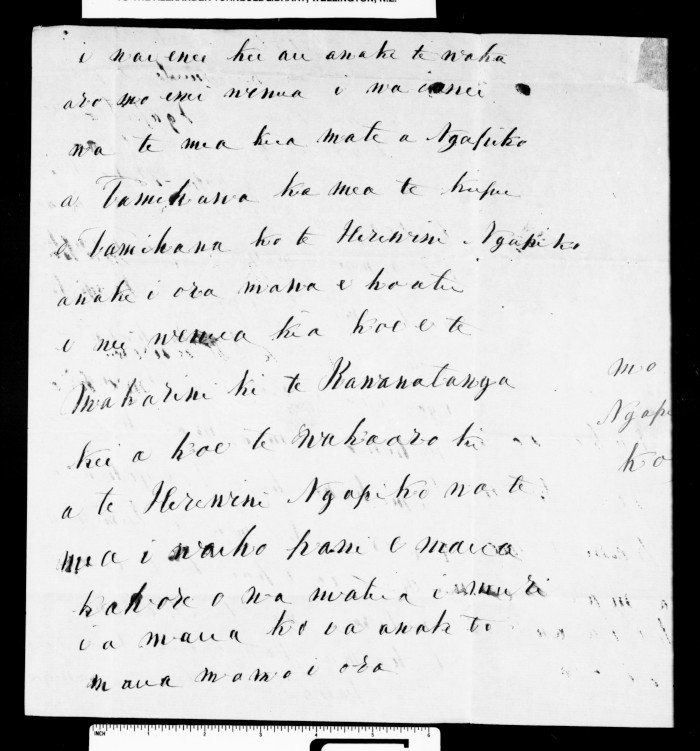 TO THE ALEXANDER TURNBULL LIBRARY, WELLINGTON, N.Z.
i kei au anake te waka
aro mo enei wenua i na ianei
na te mea kua mate a Ngapiko
a Tamihana ka mea te kupu
a Tamihana ko te Herewini Ngapiko
anake i ora mana e hoatu
i nei wenua kia koe e te
Makarini ki te Kawanatanga
kei a koe te wakaaro ki
a te Herewini Ngapiko na te
mea i waiho pani e maua
kahore o na matua i muri
i a maua ko ia anake to
maua momo i ora
mo
Ngapi
ko
INCH